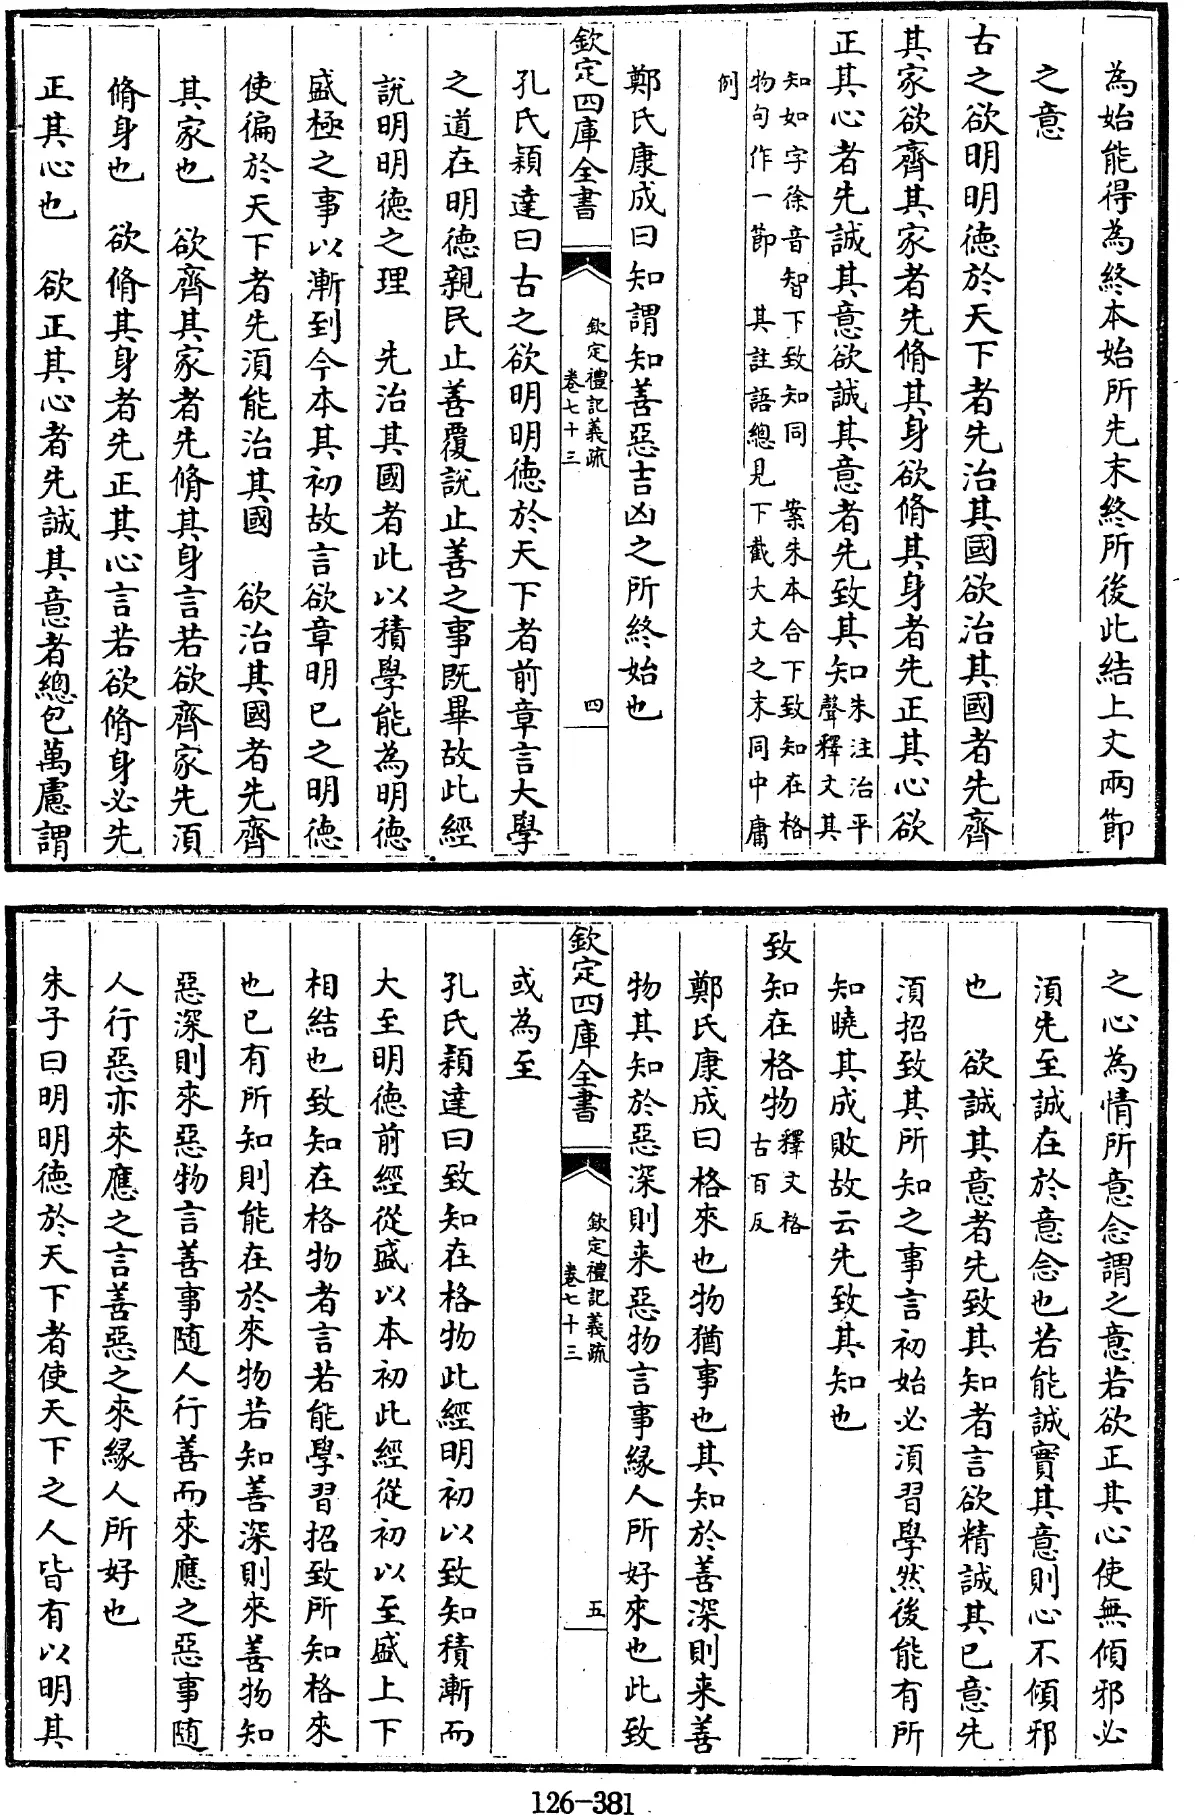 為始能得為終本始所先末終所後此結上文兩節
之意
古之欲明明德於天下者先治其國欲治其國者先齊
其家欲齊其家者先脩其身欲脩其身者先正其心欲
正其心者先誠其意欲誠其意者先致其知朱注治平
聲釋文其
知如字徐音智下致知同　案朱本合下致知在格
物句作一節　其註語總見下截大文之末同中庸
例
鄭氏康成曰知謂知善惡吉凶之所終始也
欽定四庫全書
欽定禮記義疏
卷七十三
四
孔氏穎達曰古之欲明明德於天下者前章言大學
之道在明德親民止善覆說止善之事既畢故此經
說明明德之理　先治其國者此以積學能為明德
盛極之事以漸到今本其初故言欲章明已之明德
使徧於天下者先須能治其國　欲治其國者先齊
其家也　欲齊其家者先脩其身言若欲齊家先須
脩身也　欲脩其身者先正其心言若欲脩身必先
正其心也　欲正其心者先誠其意者總包萬慮謂
之心為情所意念謂之意若欲正其心使無傾邪必
須先至誠在於意念也若能誠實其意則心不傾邪
也　欲誠其意者先致其知者言欲精誠其已意先
須招致其所知之事言初始必須習學然後能有所
知曉其成敗故云先致其知也
致知在格物釋文格
古百反
鄭氏康成曰格來也物猶事也其知於善深則来善
物其知於惡深則来惡物言事緣人所好來也此致
欽定四庫全書
欽定禮記義疏
卷七十三
五
或為至
孔氏穎達曰致知在格物此經明初以致知積漸而
大至明德前經從盛以本初此經從初以至盛上下
相結也致知在格物者言若能學習招致所知格來
也已有所知則能在於來物若知善深則來善物知
惡深則來惡物言善事随人行善而來應之惡事随
人行惡亦來應之言善惡之來緣人所好也
朱子曰明明德於天下者使天下之人皆有以明其
126-381